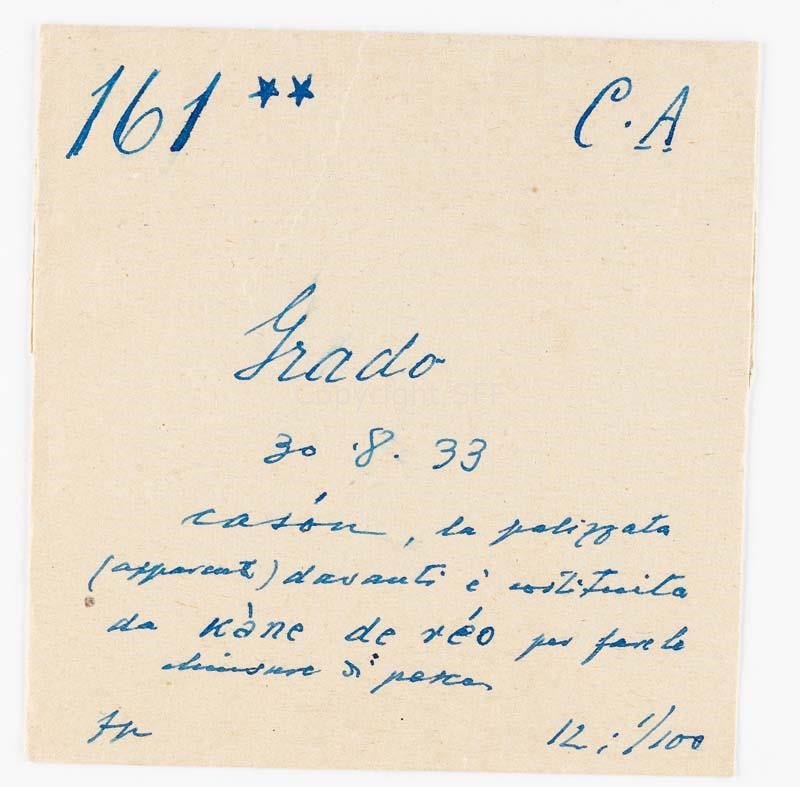 161 ** C.A
Grado
30.8.33
casón, la palizzata
(apparente) davanti è costituita
da kàne de réo per fare le
chiusure di pesca
12; 1/100